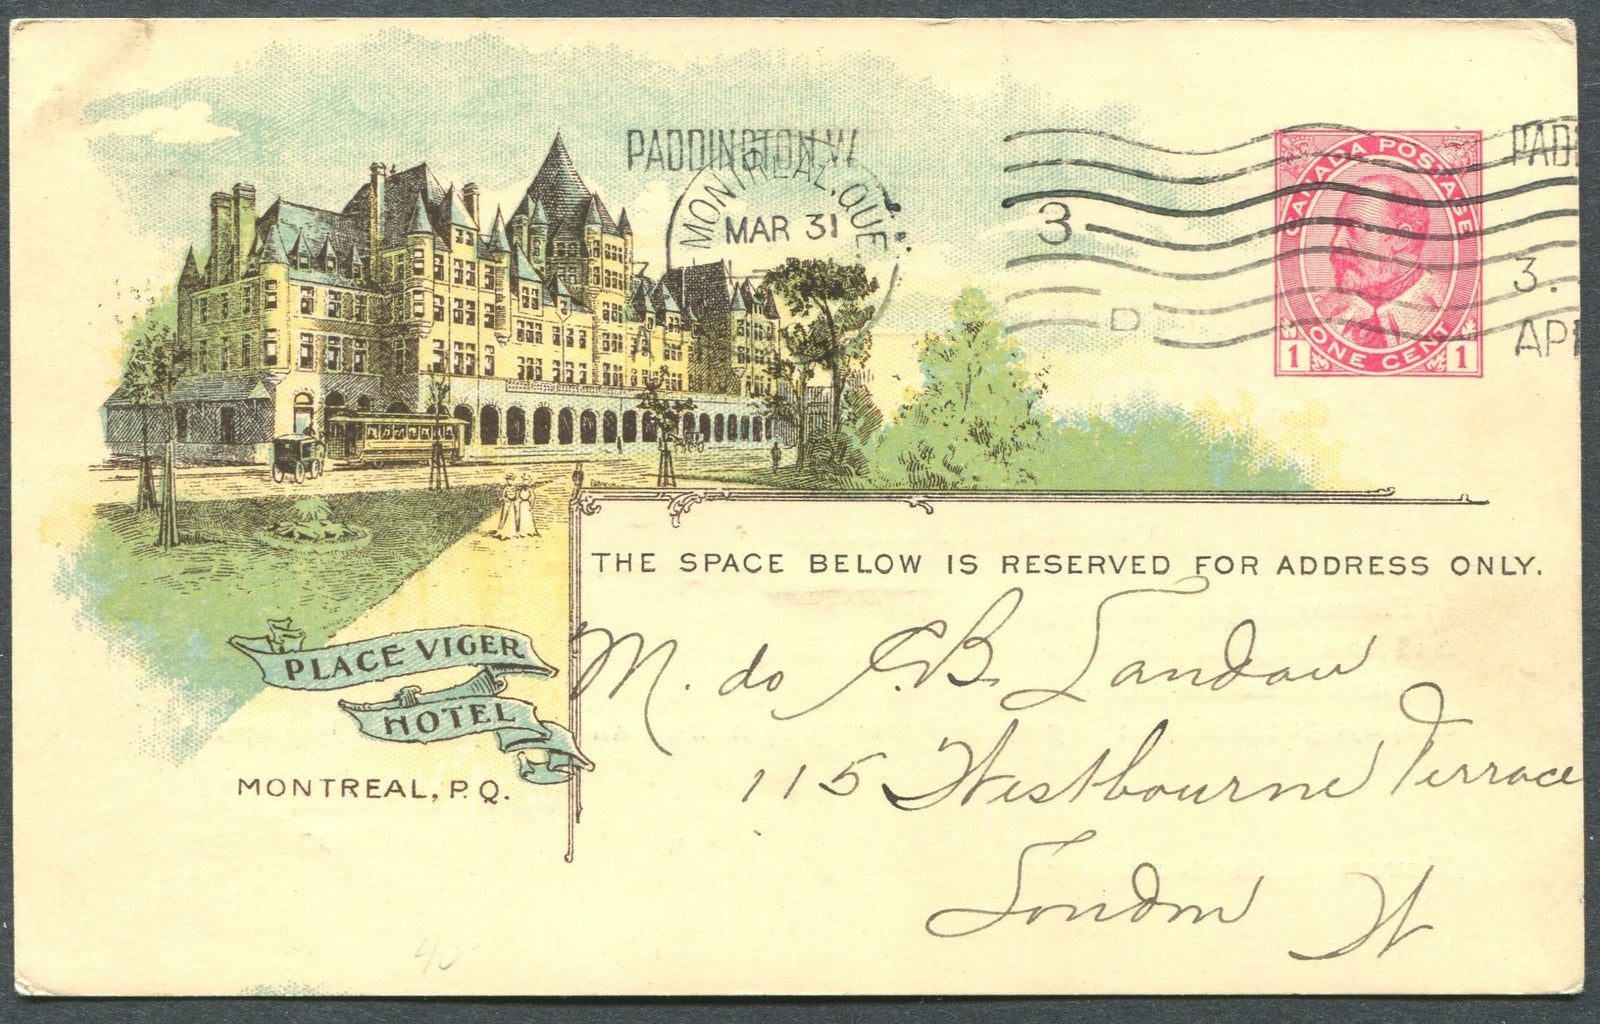 PADDINGTON.W
MONTREAL, QUE.
MAR 31
3
D
PAD
3.
AP
CANADA POSTAGE
ONE CENT
1 1
THE SPACE BELOW IS RESERVED FOR ADDRESS ONLY.
PLACE VIGER
HOTEL
MONTREAL, P.Q.
M. do B. Landau
115 Westbourne Terrace
London W
40